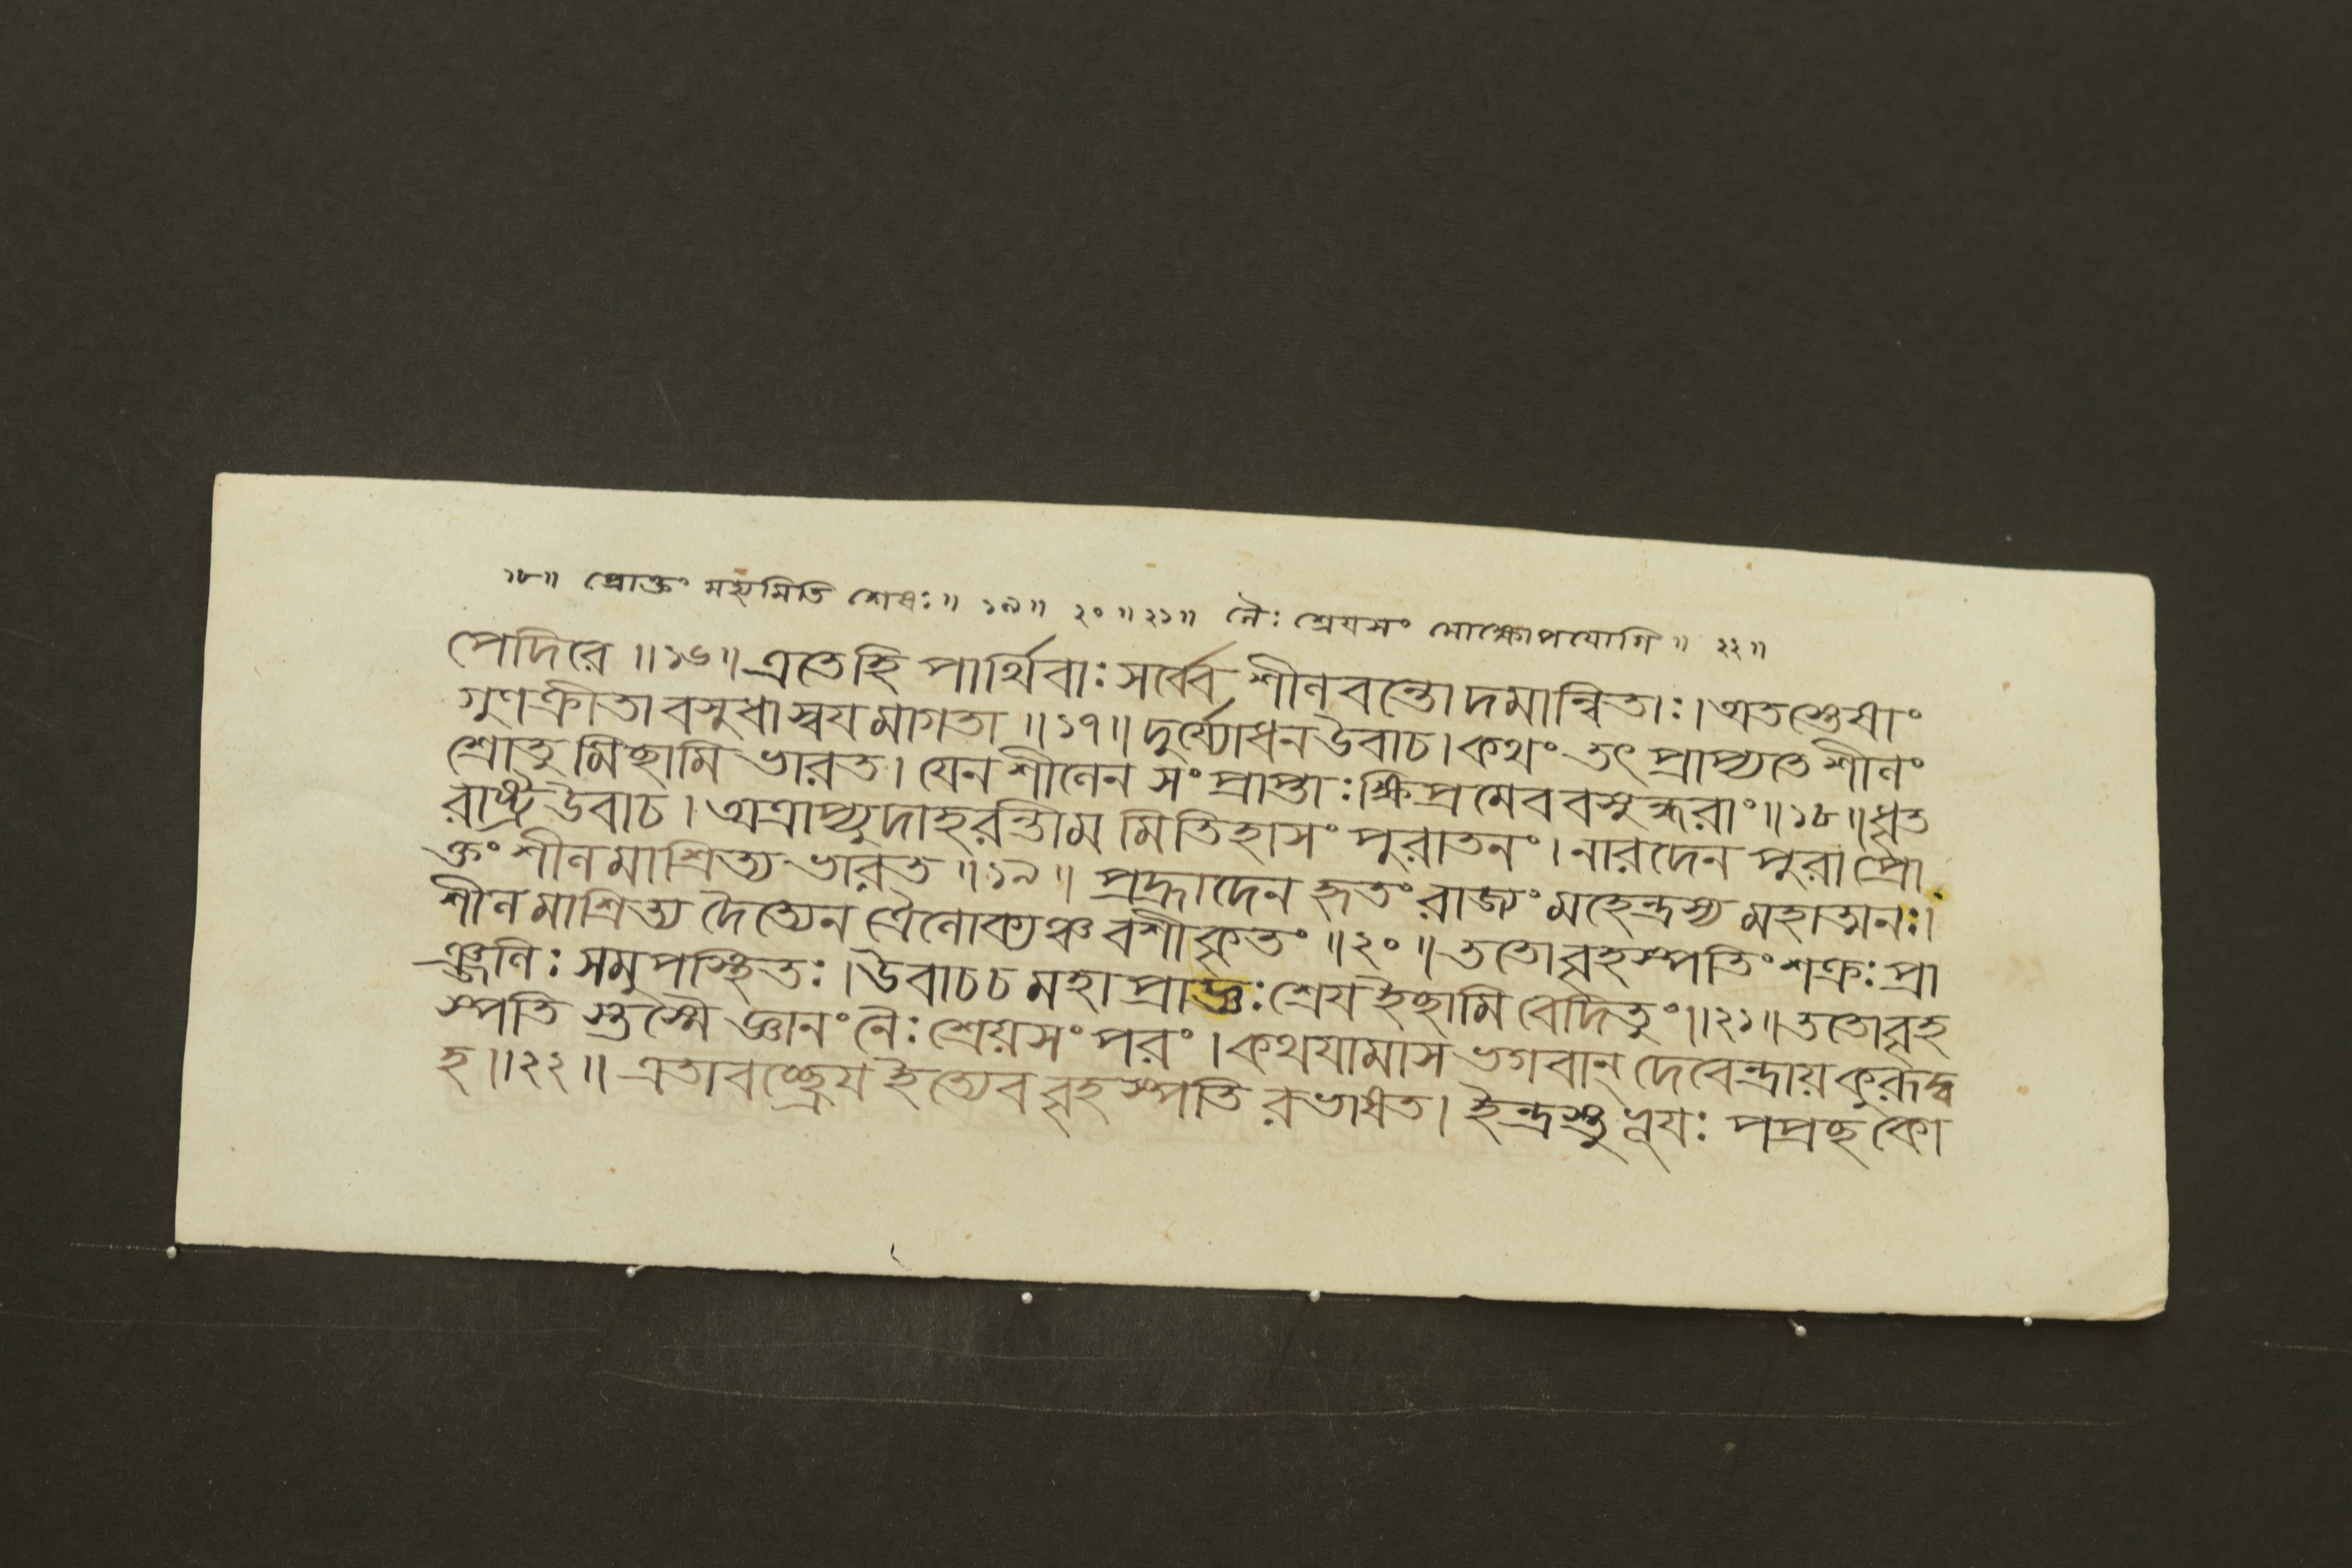 ১৮॥ প্রোক্তং মহ্যমিতি শেষঃ॥ ১৯॥ ২০॥২১॥ নৈঃ শ্রেযসং মোক্ষোপযোগি॥ ২২॥
পেদিরে॥১৬॥এতেহি পার্থিবাঃ সর্ব্বে শীলবন্তোদমান্বিতাঃ।অতস্তেষাং
গুণক্রীতাবসুধাস্বযমাগতা॥১৭॥দুর্য্যোধনউবাচ।কথং তৎ প্রাপ্যতে শীলং
শ্রোতুমিছামি ভারত। যেনশীলেন সংপ্রাপ্তাঃক্ষিপ্রমেববসুন্ধরাং॥১৮॥ধৃত
রাষ্ট্রউবাচ।অত্রাপ্যুদাহরন্তীমমিতিহাসং পুরাতনং।নারদেন পুরা প্রো
ক্তং শীলমাশ্রিত্য ভারত॥১৯॥ প্রহ্লাদেন হৃতং রাজ্যং মহেন্দ্রস্য মহাত্মনঃ।
শীলমাশ্রিত্য দৈত্যেন ত্রৈলোক্যঞ্চ বশীকৃতং॥২০॥ততোবৃহস্পতিংশক্রঃ প্রা
ঞ্জলিঃ সমুপস্থিতঃ।উবাচচ মহাপ্রাজ্ঞঃশ্রেযইছামি বেদিতুং॥২১॥ততোবৃহ
স্পতি স্তস্মৈ জ্ঞানং নৈঃশ্রেয়সংপরং।কথযামাস ভগবান্ দেবেন্দ্রায়কুরূদ্ব
হ॥২২॥ এতাবচ্ছ্রেয ইত্যেব বৃহস্পতি রভাষত। ইন্দ্রস্তু ভূযঃ পপ্রছ কো